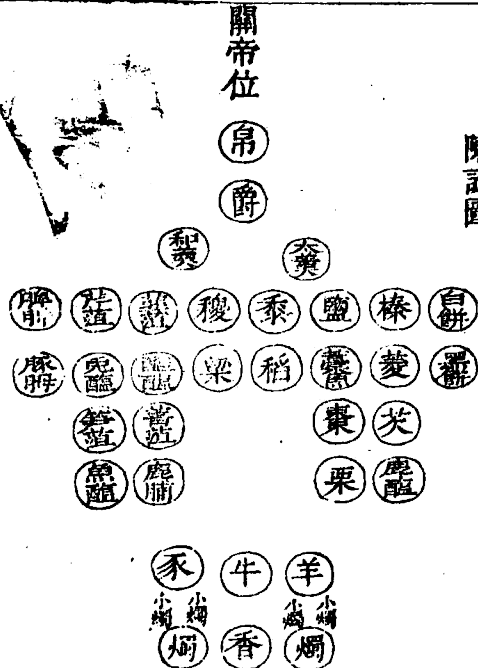 陳設圖
關帝位
帛
爵
和羹 太羹
脾析 芹菹 稷 黍 鹽 榛 白餅
豚胉 兔醢 醓醢 粱 稻 菱 黑餅
筍菹 棗 芡
魚醢 鹿脯 栗 鹿醢
豕 牛 羊
小燭 小燭 小燭 小燭
燭 香 燭